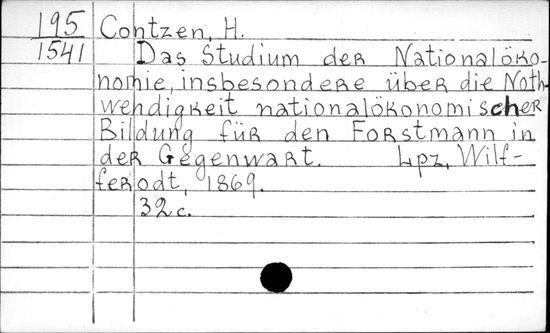 195 Contzen, H.
1541 Das Studium der Nationalöko-
nomie, insbesondere über die Noth-
wendigkeit nationalökonomischer
Bildung für den Forstmann in
der Gegenwart. Lpz, Wilf-
ferodt, 1869.
32 c.